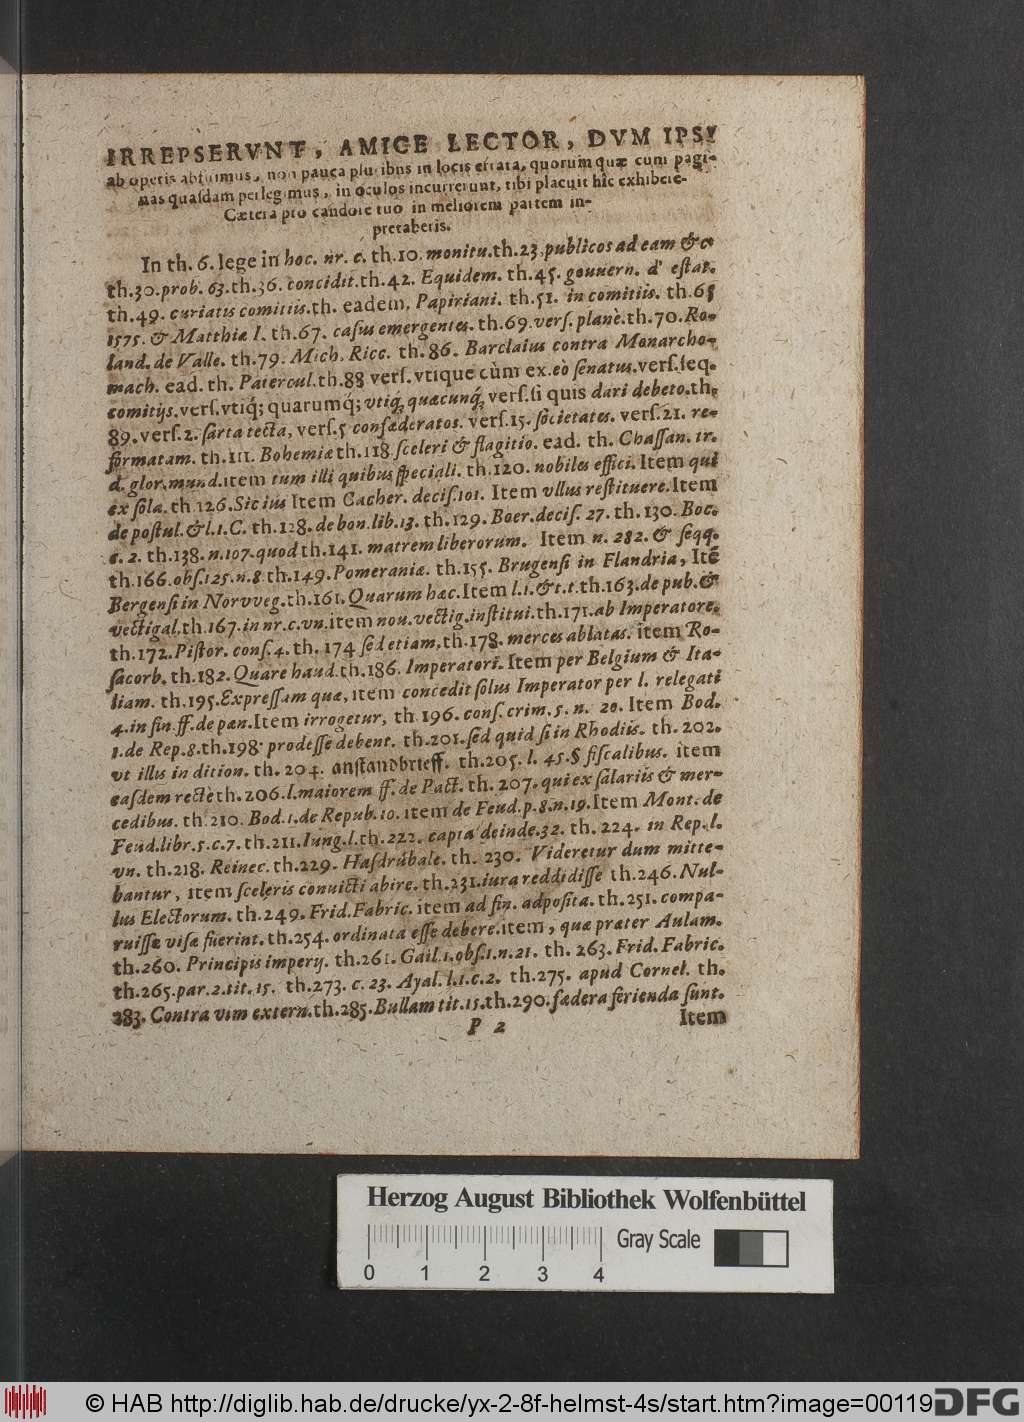 IRREPSERVNT, AMICE LECTOR, DVM IPSI
ab operis abfuimus, non pauca pluribus in locis errata, quorum quæ cum pagi-
nas quasdam perlegimus, in oculos incurrerunt, tibi placuit hîc exhibere.
Cætera pro candore tuo in meliorem partem in-
pretaberis.
In th. 6. lege in hoc. nr. c. th. 10. monitu. th. 23. publicos ad eam &c.
th. 30. prob. 63. th. 36. concidit. th. 42. Equidem. th. 45. gouuern. d' estat.
th. 49. curiatis comitiis. th. eadem, Papiriani. th. 51. in comitiis. th. 65
1575. & Matthiæ I. th. 67. casus emergentes. th. 69. vers. planè. th. 70. Ro-
land. de Valle. th. 79. Mich. Ricc. th. 86. Barclaius contra Monarcho-
mach. ead. th. Patercul. th. 88 vers. vtique cùm ex. eò senatus. vers. seq.
comitijs. vers. vtiq́; quarumq́; vtiq, quacunq́, vers. si quis dari debeto. th.
89. vers. 2. sarta tecta, vers. 5 confœderatos. vers. 15. societates. vers. 21. re-
formatam. th. 111. Bohemiæ th. 118. sceleri & flagitio. ead. th. Chassan. tr.
d. glor. mund. item tum illi quibus speciali. th. 120. nobiles effici. Item qui
ex sola. th. 126. Sic ius Item Cacher. decis. 101. Item vllus restituere. Item
de postul. & l. 1. C. th. 128. de bon. lib. 13. th. 129. Boer. decis. 27. th. 130. Boc.
c. 2. th. 138. n. 107. quod th. 141. matrem liberorum. Item n. 282. & seqq.
th. 166. obs. 125. n. 8. th. 149. Pomeraniæ. th. 155. Brugensi in Flandria, Itẽ
Bergensi in Norvveg. th. 161. Quarum hæc. Item l. 1. & t. t. th. 163. de pub. &
vectigal. th. 167. in nr. c. vn. item nou. vectig. institui. th. 171. ab Imperatore.
th. 172. Pistor. cons. 4. th. 174 sed etiam, th. 178. merces ablatas. item Ro-
sacorb. th. 182. Quare haud. th. 186. Imperatori. Item per Belgium & Ita-
liam. th. 195. Expressam quæ, item concedit solus Imperator per l. relegati
4. in fin. ff. de pœn. Item irrogetur, th 196. cons. crim. 5. n. 20. Item Bod.
1. de Rep. 8. th. 198. prodesse debent. th. 201. sed quid si in Rhodiis. th. 202.
vt illus in dition. th. 204. anstandbrieff. th. 205. l. 45. § fiscalibus. item
easdem rectè th. 206. l. maiorem ff. de Pact. th. 207. qui ex salariis & mer-
cedibus. th. 210. Bod. 1. de Repub. 10. item de Feud. p. 8. n. 19. Item Mont. de
Feud. libr. 5. c. 7. th. 211. Iung. l. th. 222. capta deinde. 32. th. 224. in Rep. l.
vn. th. 218. Reinec. th. 229. Hasdrubale. th. 230. Videretur dum mitte-
bantur, item sceleris conuicti abire. th. 231. iura reddidisse th. 246. Nul-
lus Electorum. th. 249. Frid. Fabric. item ad fin. adposita. th. 251. compa-
ruisse visæ fuerint. th. 254. ordinata esse debere. item, quæ præter Aulam.
th. 260. Principis imperij. th. 261. Gail. 1. obs. 1. n. 21. th. 263. Frid. Fabric.
th. 265. par. 2. tit. 15. th. 273. c. 23. Ayal. l. 1. c. 2. th. 275. apud Cornel. th.
283. Contra vim extern. th. 285. Bullam tit. 15. th. 290. fœdera ferienda sunt.
P 2 Item
Herzog August Bibliothek Wolfenbüttel
Gray Scale
0 1 2 3 4
© HAB http://diglib.hab.de/drucke/yx-2-8f-helmst-4s/start.htm?image=00119
DFG